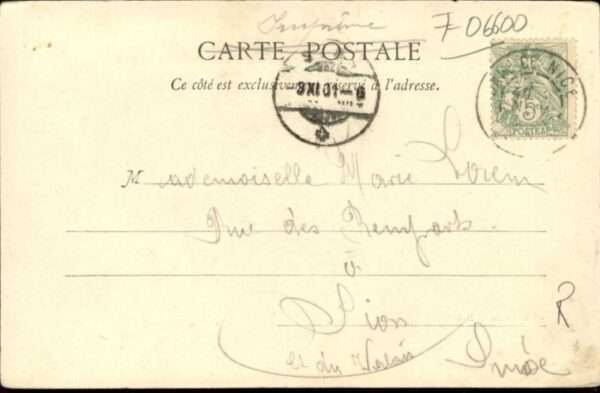 Imprimé
F 06600
CARTE POSTALE
Ce côté est exclusivement réservé à l'adresse.
NICE
5
POSTES
3 XI 01 - 9
Mademoiselle Marie Lorem
Rue des Remparts
à
Sion
ct du Valais
Suisse
R